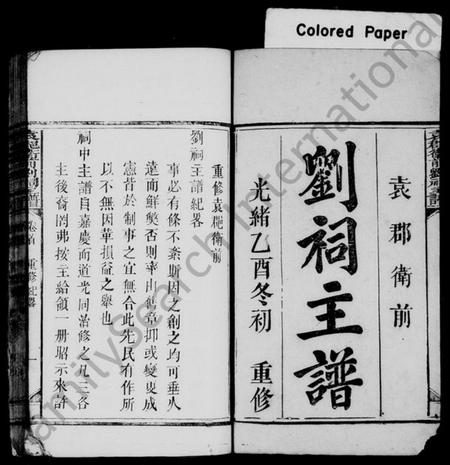 Colored Paper
袁郡衛前
劉祠主譜
光緒乙酉冬初 重修
重修袁郡衛前
劉祠主譜紀畧
事必有條不紊斯因之創之均可垂久
遠而鮮獘否則率由舊章抑或變更成
憲昔於制事之宜無合此先民有作所
以不無因革損益之舉也
祠中主譜自嘉慶而道光同治修之凡三各
主後裔罔弗按主給領一册昭示來許
卷首 重修紀畧 一
FamilySearch International